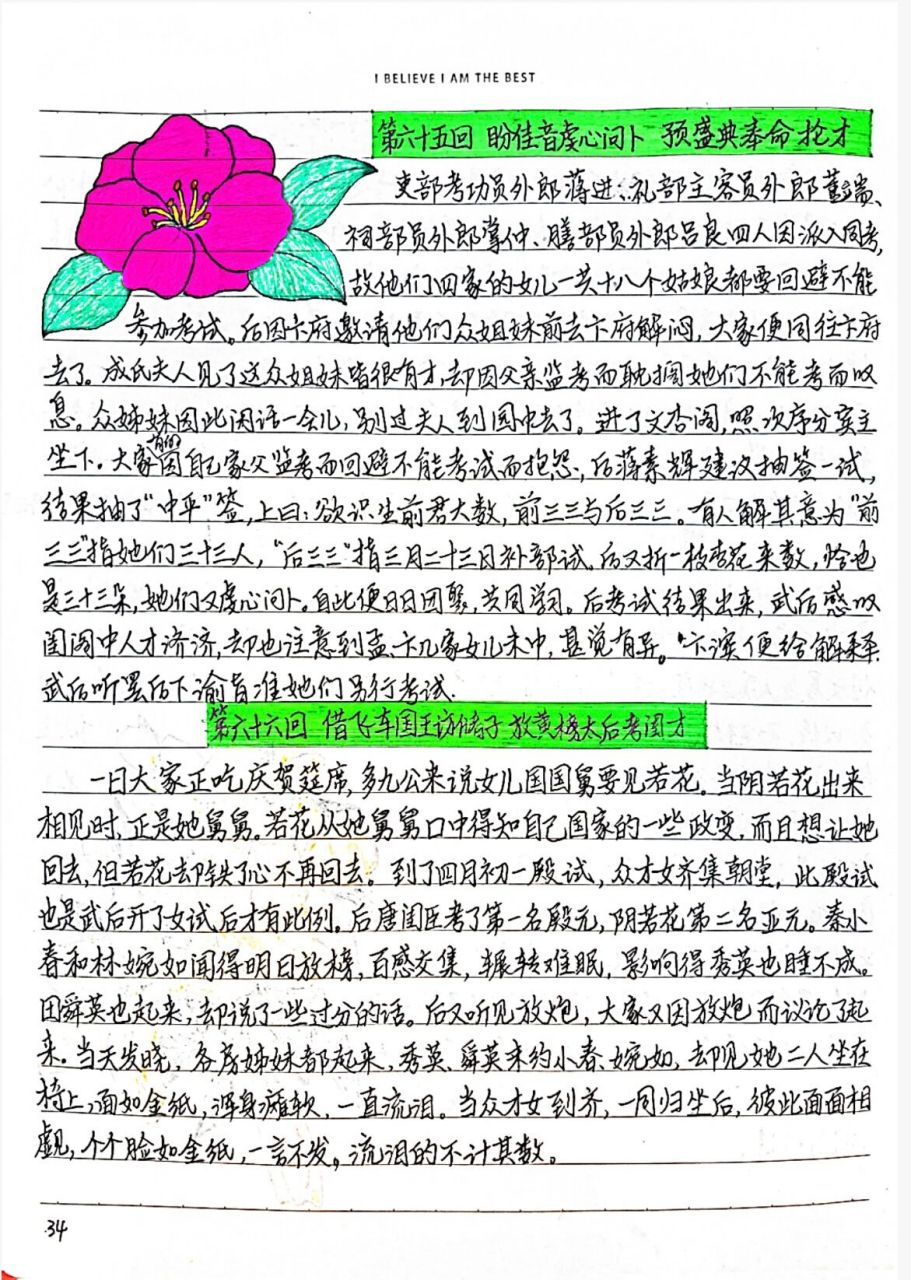 I BELIEVE I AM THE BEST
第六十五回 盼佳音虔心问卜 预盛典奉命抡才
吏部考功员外郎蒋进、礼部主客员外郎董端、
祠部员外郎掌仲、膳部员外郎吕良四人因派入同考,
故他们四家的女儿一共十八个姑娘都要回避不能
参加考试。后因卞府邀请他们众姐妹前去卞府解闷,大家便同往卞府
去了。成氏夫人见了这众姐妹皆很有才,却因父亲监考而耽搁她们不能考而叹
息。众姊妹因此闲话一会儿,别过夫人到园中去了。进了文杏阁,照次序分宾主
坐下。大家有的因自己家父监考而回避不能考试而抱怨,后蒋素辉建议抽签一试,
结果抽了“中平”签,上曰:欲识生前君大数,前三三与后三三。有人解其意为“前
三三”指她们三十三人,“后三三”指三月二十三日补部试。后又折一枝杏花来数,恰也
是三十三朵,她们又虔心问卜。自此便日日团聚,共同学习。后考试结果出来,武后感叹
闺阁中人才济济,却也注意到孟、卞几家女儿未中,甚觉有异。卞滨便给解释.
武后听罢后下谕旨准她们另行考试.
第六十六回 借飞车国王访储子 放黄榜太后考闺才
一日大家正吃庆贺筵席,多九公来说女儿国国舅要见若花。当阴若花出来
相见时,正是她舅舅。若花从她舅舅口中得知自己国家的一些政变,而且想让她
回去,但若花却铁了心不再回去。到了四月初一殿试,众才女齐集朝堂,此殿试
也是武后开了女试后才有此例。后唐闺臣考了第一名殿元,阴若花第二名亚元。秦小
春和林婉如闻得明日放榜,百感交集,辗转难眠,影响得秀英也睡不成。
田舜英也起来,却说了一些过分的话。后又听见放炮,大家又因放炮而议论了起
来。当天发晓,各房姊妹都起来,秀英、舜英来约小春、婉如,却见她二人坐在
椅上,面如金纸,浑身瘫软,一直流泪。当众才女到齐,一同归坐后,彼此面面相
觑,个个脸如金纸,一言不发,流泪的不计其数。
34